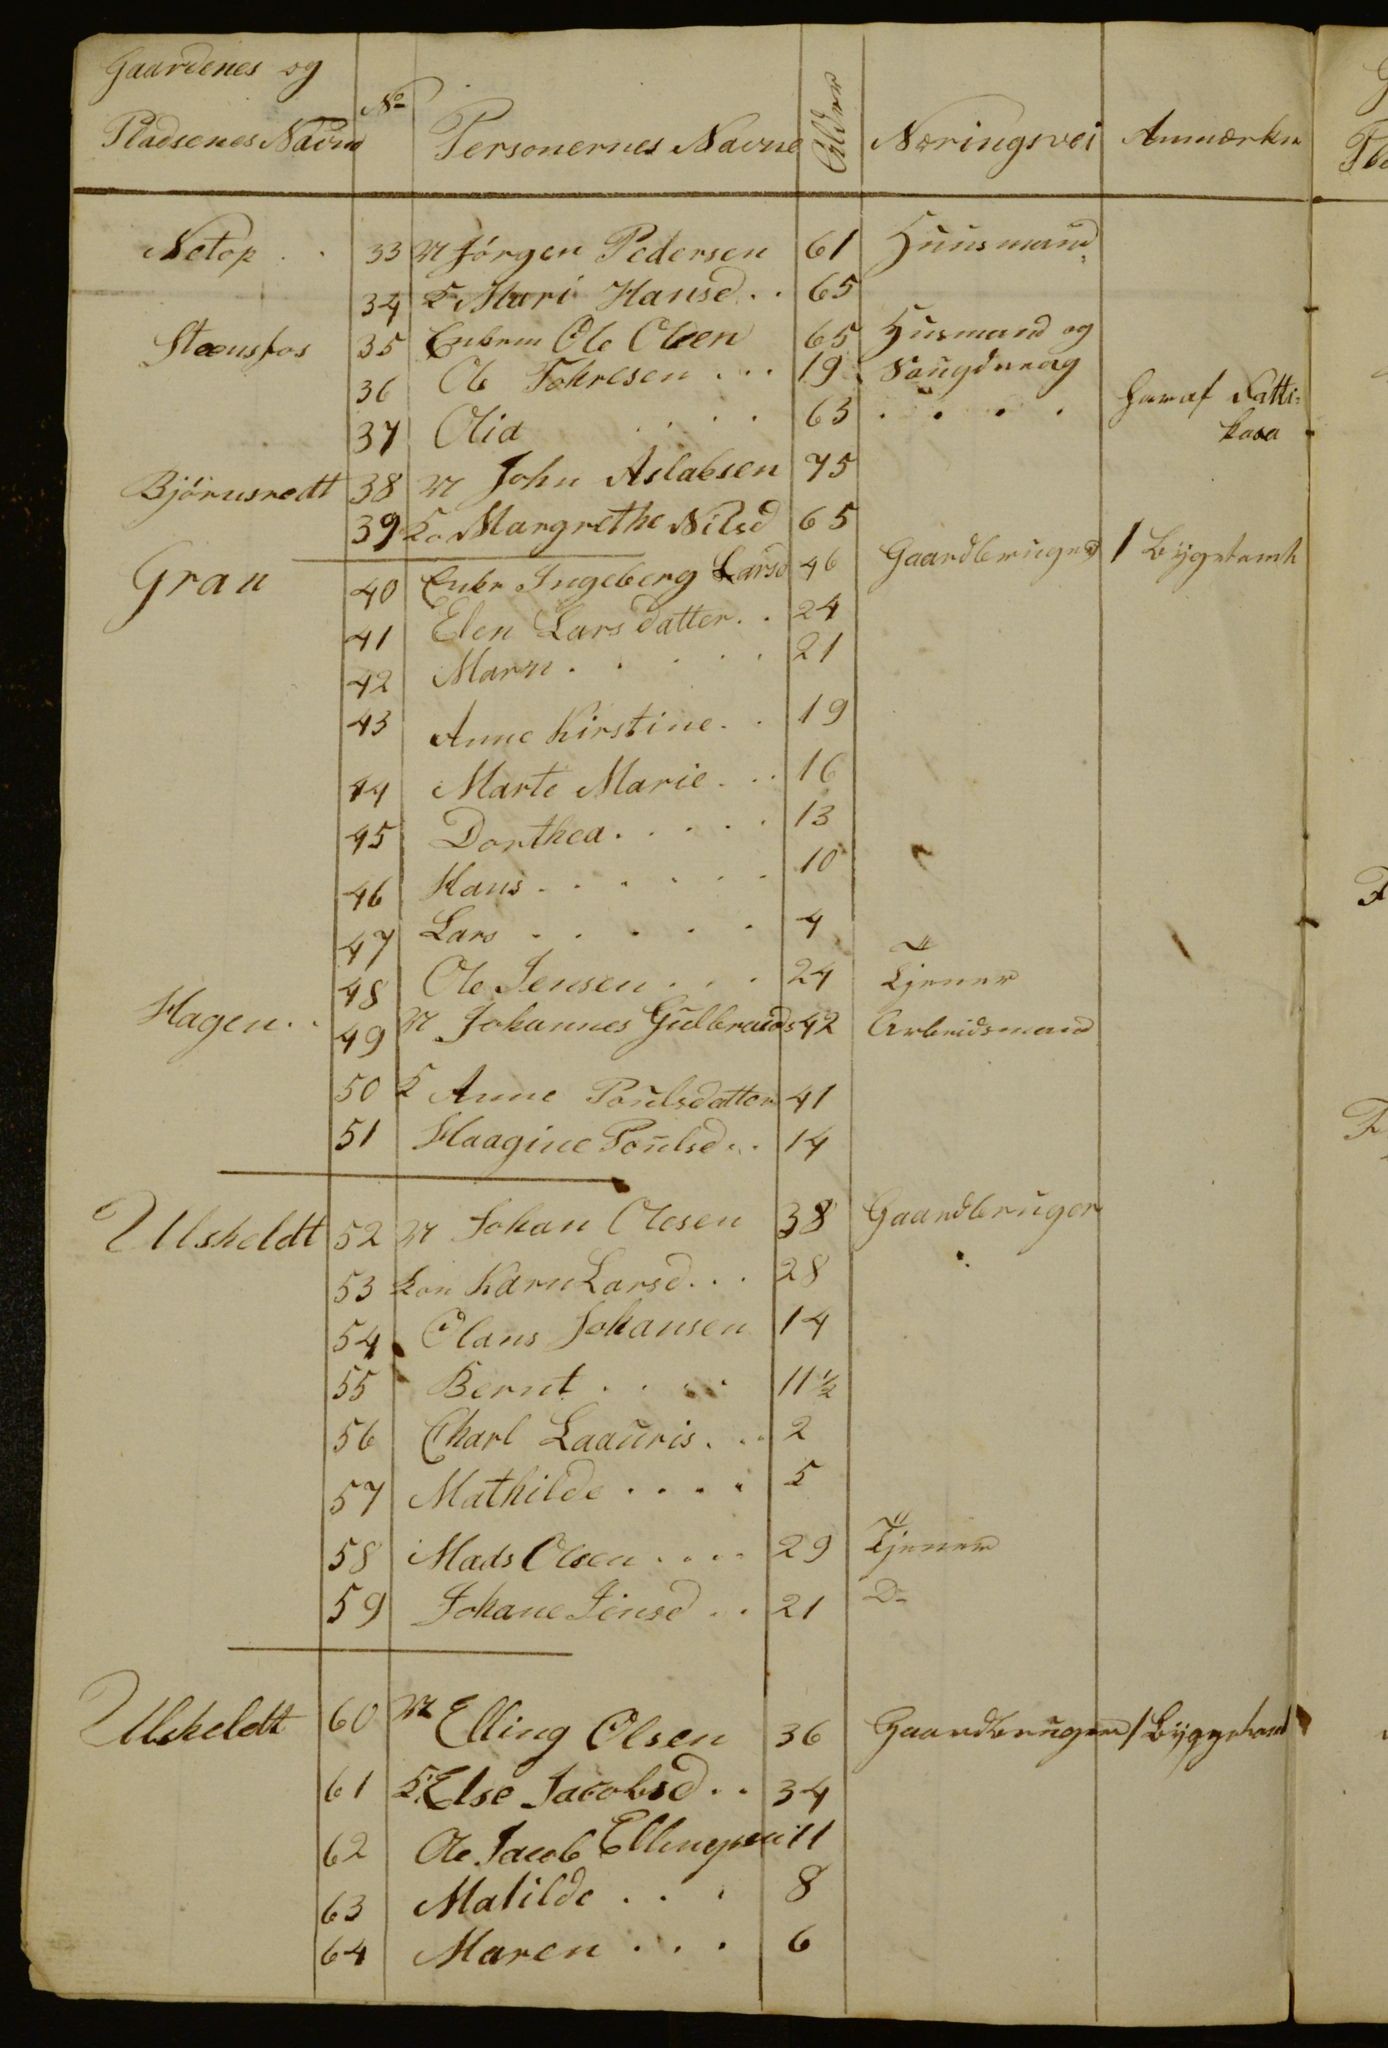 Gaardenes og
Pladsenes Navne No Personernes Navne Alder Næringsvei Anmærkn
Netop . . 33 M Jörgen Pedersen 61 Huusmand
34 K Mari Hansd . . 65
Steensfos 35 Enkem Ole Olsen 65 Husmand og
36 Ole Tohresen . . . 19 Saugdreng
37 Olia . . . 63 . . . . har af Fatti-
kasa
Björnsredt 38 M John Aslaksen 75
39 Ko Margrethe Nilsd 65
Gran 40 Enke Ingeberg Larsd 46 Gaardbruger 1
41 Elen Larsdatter . . 24
42 Marn . . . . . 21
43 Anne Kirstine . . 19
44 Marte Marie . . . 16
45 Dorthea . . . . . 13
46 Hans . . . . . . 10
47 Lars . . . . . 4
48 Ole Jensen . . . 24 Tjener
Hagen . . 49 M Johannes Gulbrands 42 Arbeidsmand
50 K Anne Poulsdatter 41
51 Haagine Poulsd . . 14
Ulsheldt 52 M Johan Olesen 38 Gaardbruger
53 Kon Karn Larsd . . . 28
54 Olaus Johansen 14
55 Bernt . . . . 11 ½
56 Charl Laauris . . . 2
57 Mathilde . . . . 5
58 Mads Olsen . . . . 29 Tjener
59 Johane Jensd . . 21 Do
Ulsheldt 60 M Elling Olsen 36 Gaardbruger 1
61 K Else Jacobsd . . 34
62 Ole Jacob Ellingsen 11
63 Matilde . . . 8
64 Maren . . . 6